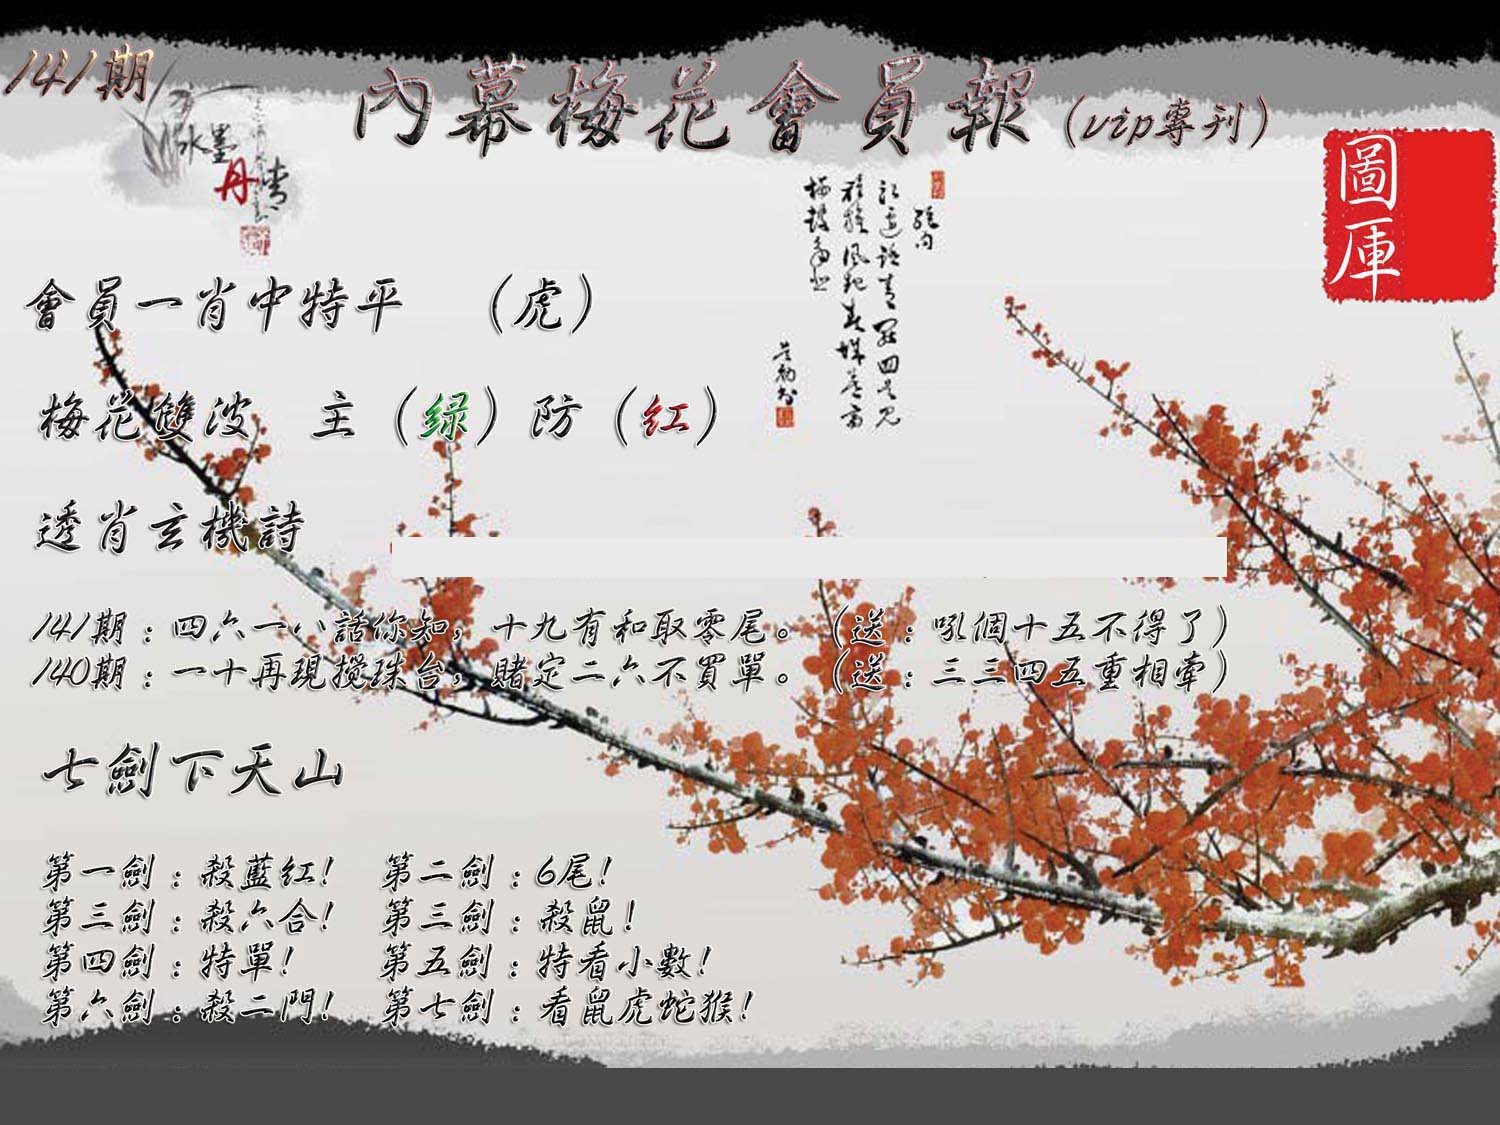 141期
內幕梅花會員報(vip專刊)
水墨
丹青
圖庫
會員一肖中特平 (虎)
梅花雙波 主(绿)防(红)
透肖玄機詩
141期:四六一八話你知,十九有和取零尾。(送:吼個十五不得了)
140期:一十再現搅珠台,賭定二六不買單。(送:三三四五重相牽)
七劍下天山
第一劍:殺藍紅! 第二劍:6尾!
第三劍:殺六合! 第三劍:殺鼠!
第四劍:特單! 第五劍:特看小數!
第六劍:殺二門! 第七劍:看鼠虎蛇猴!